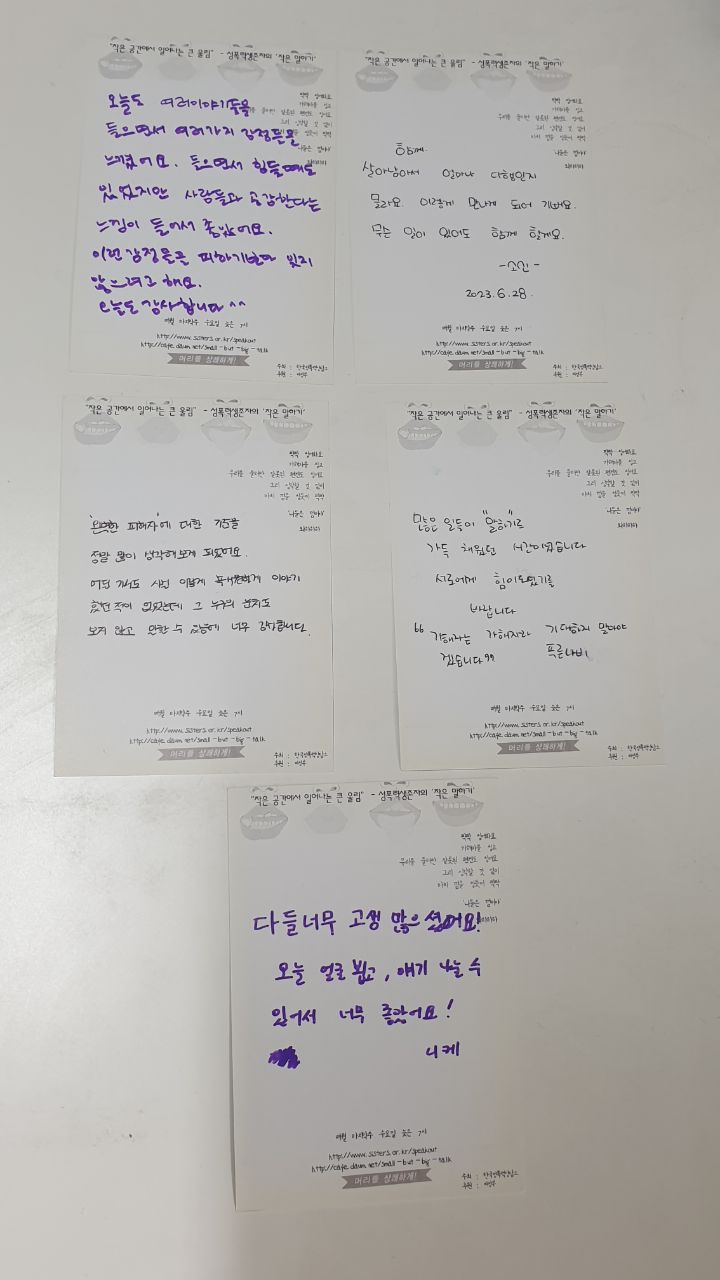 "작은 공간에서 일어나는 큰 울림" - 성폭력생존자의 '작은 말하기'
오늘도 여러이야기들을
들으면서 여러가지 감정들을
느꼈어요. 들으면서 힘들때도
있었지만 사람들과 공감한다는
느낌이 들어서 좋았어요.
이런 감정들을 피하기보다 잊지
않으려고 해요.
오늘도 감사합니다 ^^
매월 마지막주 수요일 늦은 7시
http://www.sisters.or.kr/speakout
http://cafe.daum.net/small-but-big-talk
머리를 상쾌하게!
주최 : 한국성폭력상담소
후원 :
"작은 공간에서 일어나는 큰 울림" - 성폭력생존자의 '작은 말하기'
함께.
살아남아서 얼마나 다행인지
몰라요. 이렇게 만나게 되어 기뻐요.
무슨 일이 있어도 함께 할게요.
2023.6.28.
매월 마지막주 수요일 늦은 7시
http://www.sisters.or.kr/speakout
http://cafe.daum.net/small-but-big-talk
머리를 상쾌하게!
주최 : 한국성폭력상담소
후원 :
"작은 공간에서 일어나는 큰 울림" - 성폭력생존자의 '작은 말하기'
'완벽한 피해자'에 대한 기준을
정말 많이 생각해보게 되었어요.
어딜 가서도 사실 이렇게 이야기
했던 적이 없었는데 그 누구의 눈치도
보지 않고 말할 수 있음에 너무 감사합니다.
매월 마지막주 수요일 늦은 7시
http://www.sisters.or.kr/speakout
http://cafe.daum.net/small-but-big-talk
머리를 상쾌하게!
주최 : 한국성폭력상담소
후원 :
"작은 공간에서 일어나는 큰 울림" - 성폭력생존자의 '작은 말하기'
많은 일들이 "말하기"로
가득 채웠던 시간이었습니다
서로에게 힘이되었기를
바랍니다
"가해자는 가해자라 기대하지 말아야
겠습니다" 푸른나비
매월 마지막주 수요일 늦은 7시
http://www.sisters.or.kr/speakout
http://cafe.daum.net/small-but-big-talk
머리를 상쾌하게!
주최 : 한국성폭력상담소
후원 :
"작은 공간에서 일어나는 큰 울림" - 성폭력생존자의 '작은 말하기'
다들너무 고생 많으셨어요!
오늘 얼굴 뵙고, 얘기 나눌 수
있어서 너무 좋았어요!
니케
매월 마지막주 수요일 늦은 7시
http://www.sisters.or.kr/speakout
http://cafe.daum.net/small-but-big-talk
머리를 상쾌하게!
주최 : 한국성폭력상담소
후원 :